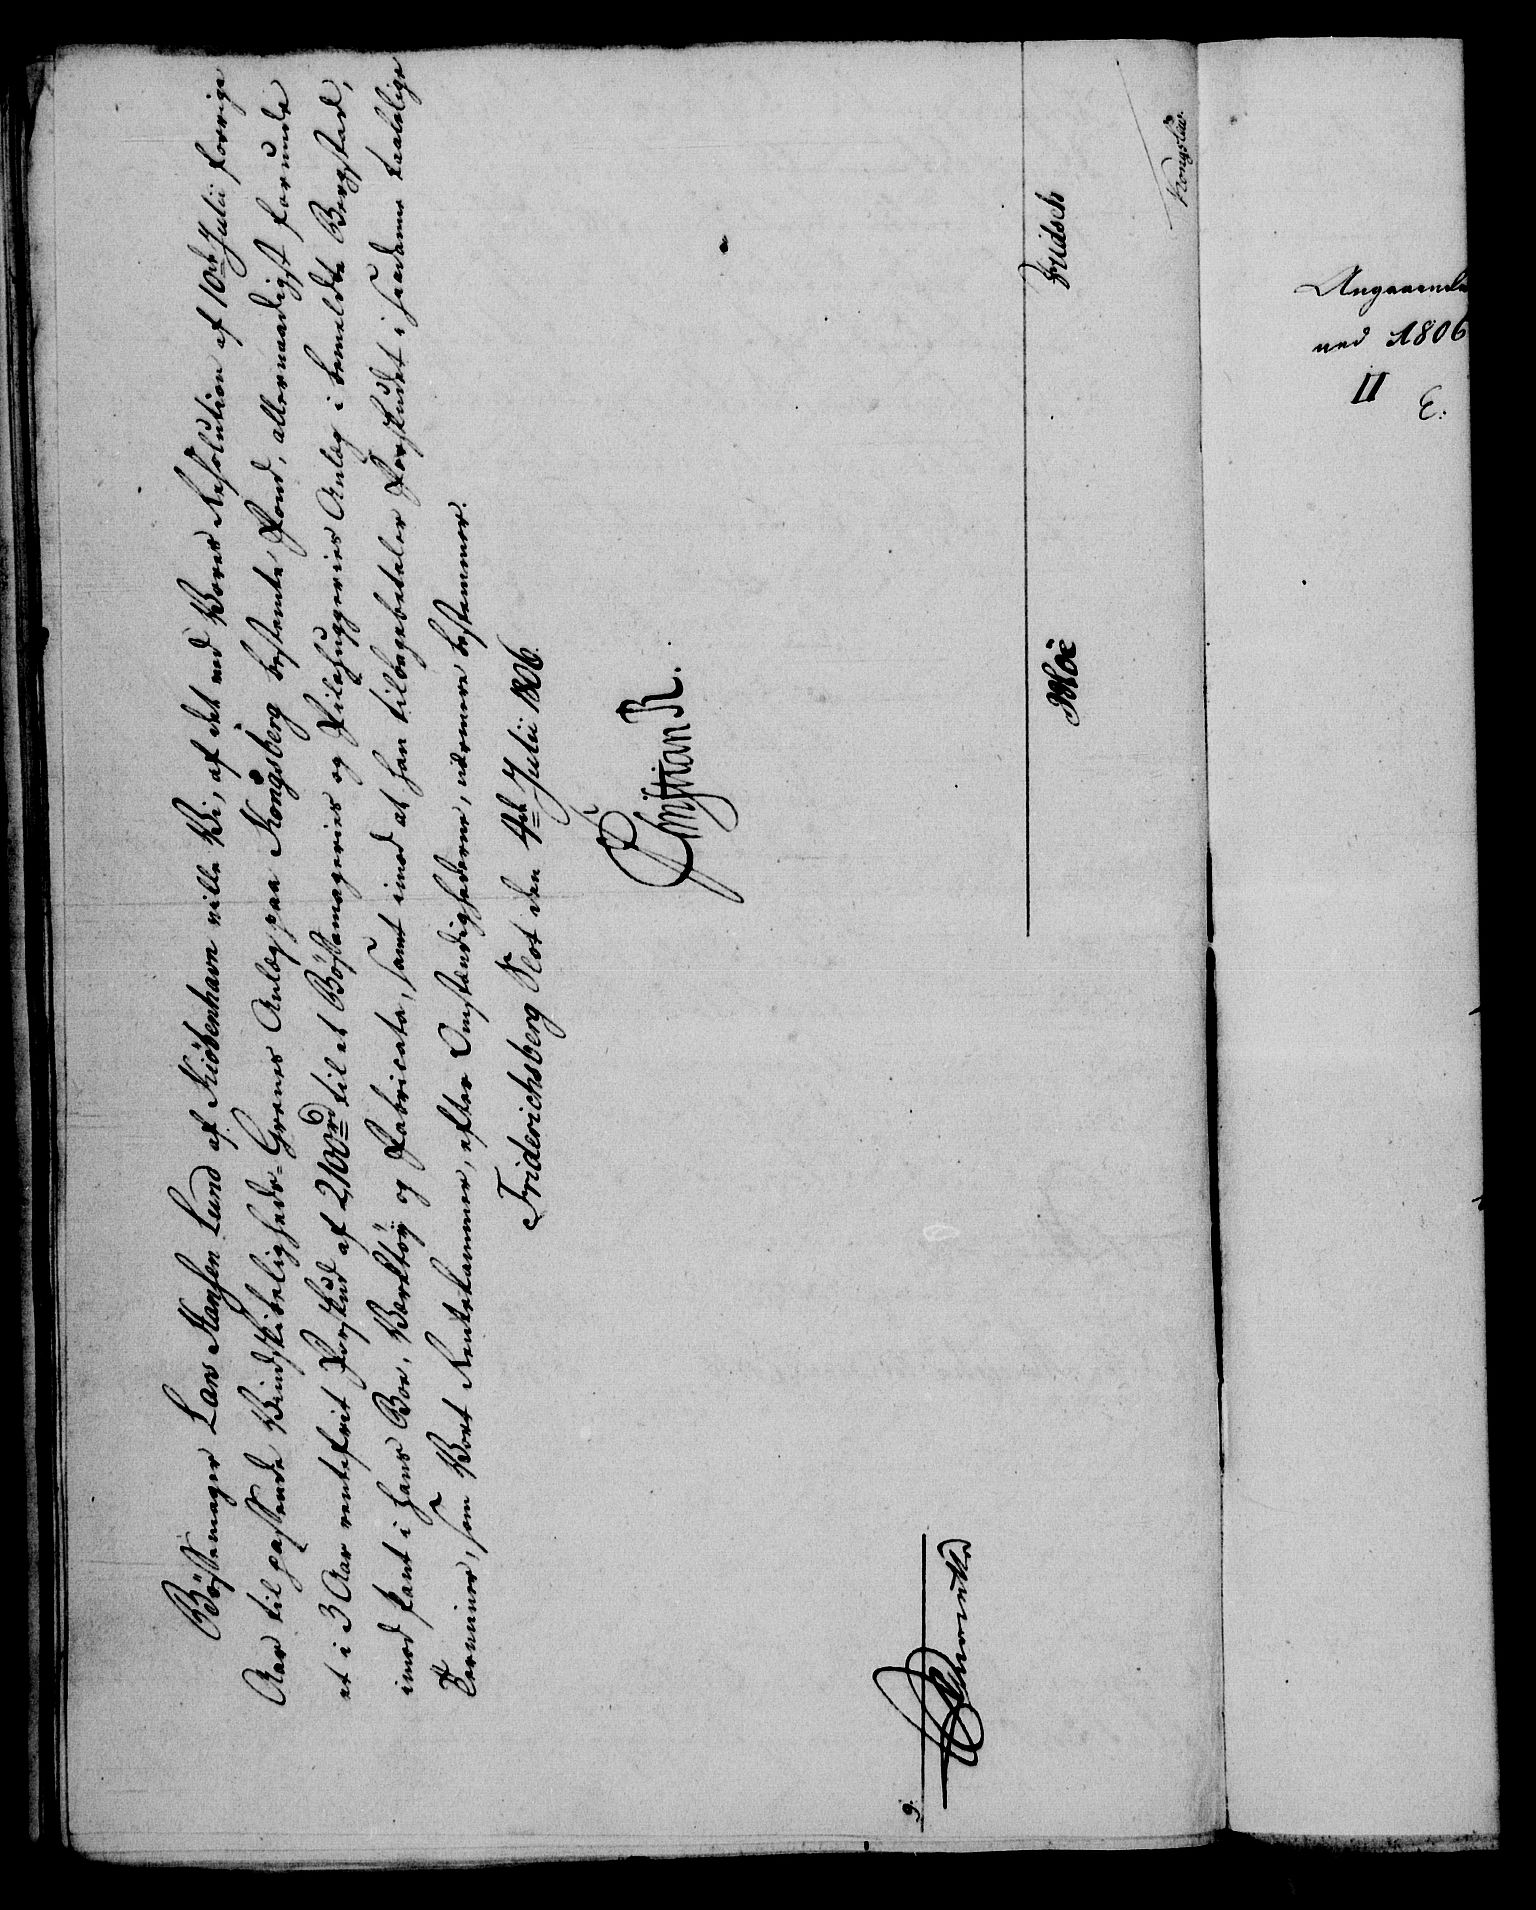 Bøssemager Lars Hansen Lund af Kiöbenhavn ville Vi, af det ved Vores Resolution af 10de Julii forrige
Aar til passende Vindskibeligheds-Grenes Anlæg paa Kongsberg bestemte Fond, allernaadigst forunde
et i 3 Aar rentefrit Forskud af 2,100rd til et Bøssemageries og Filehuggeries Anlæg i bemeldte Bergstad,
imod Pant i hans Boe, Værktøy og Fabricata, samt imod at han tilbagebetaler Forskudet i saadanne taalelige
Terminer, som Vort Rentekammer, efter Omstændighederne, nærmere bestemmer.
Friderichsberg Slot den 4de Julii 1806.
Christian R.
9.
Moe
Fridsch
Kongslew.
Angaaende
ved 1806
II
E.